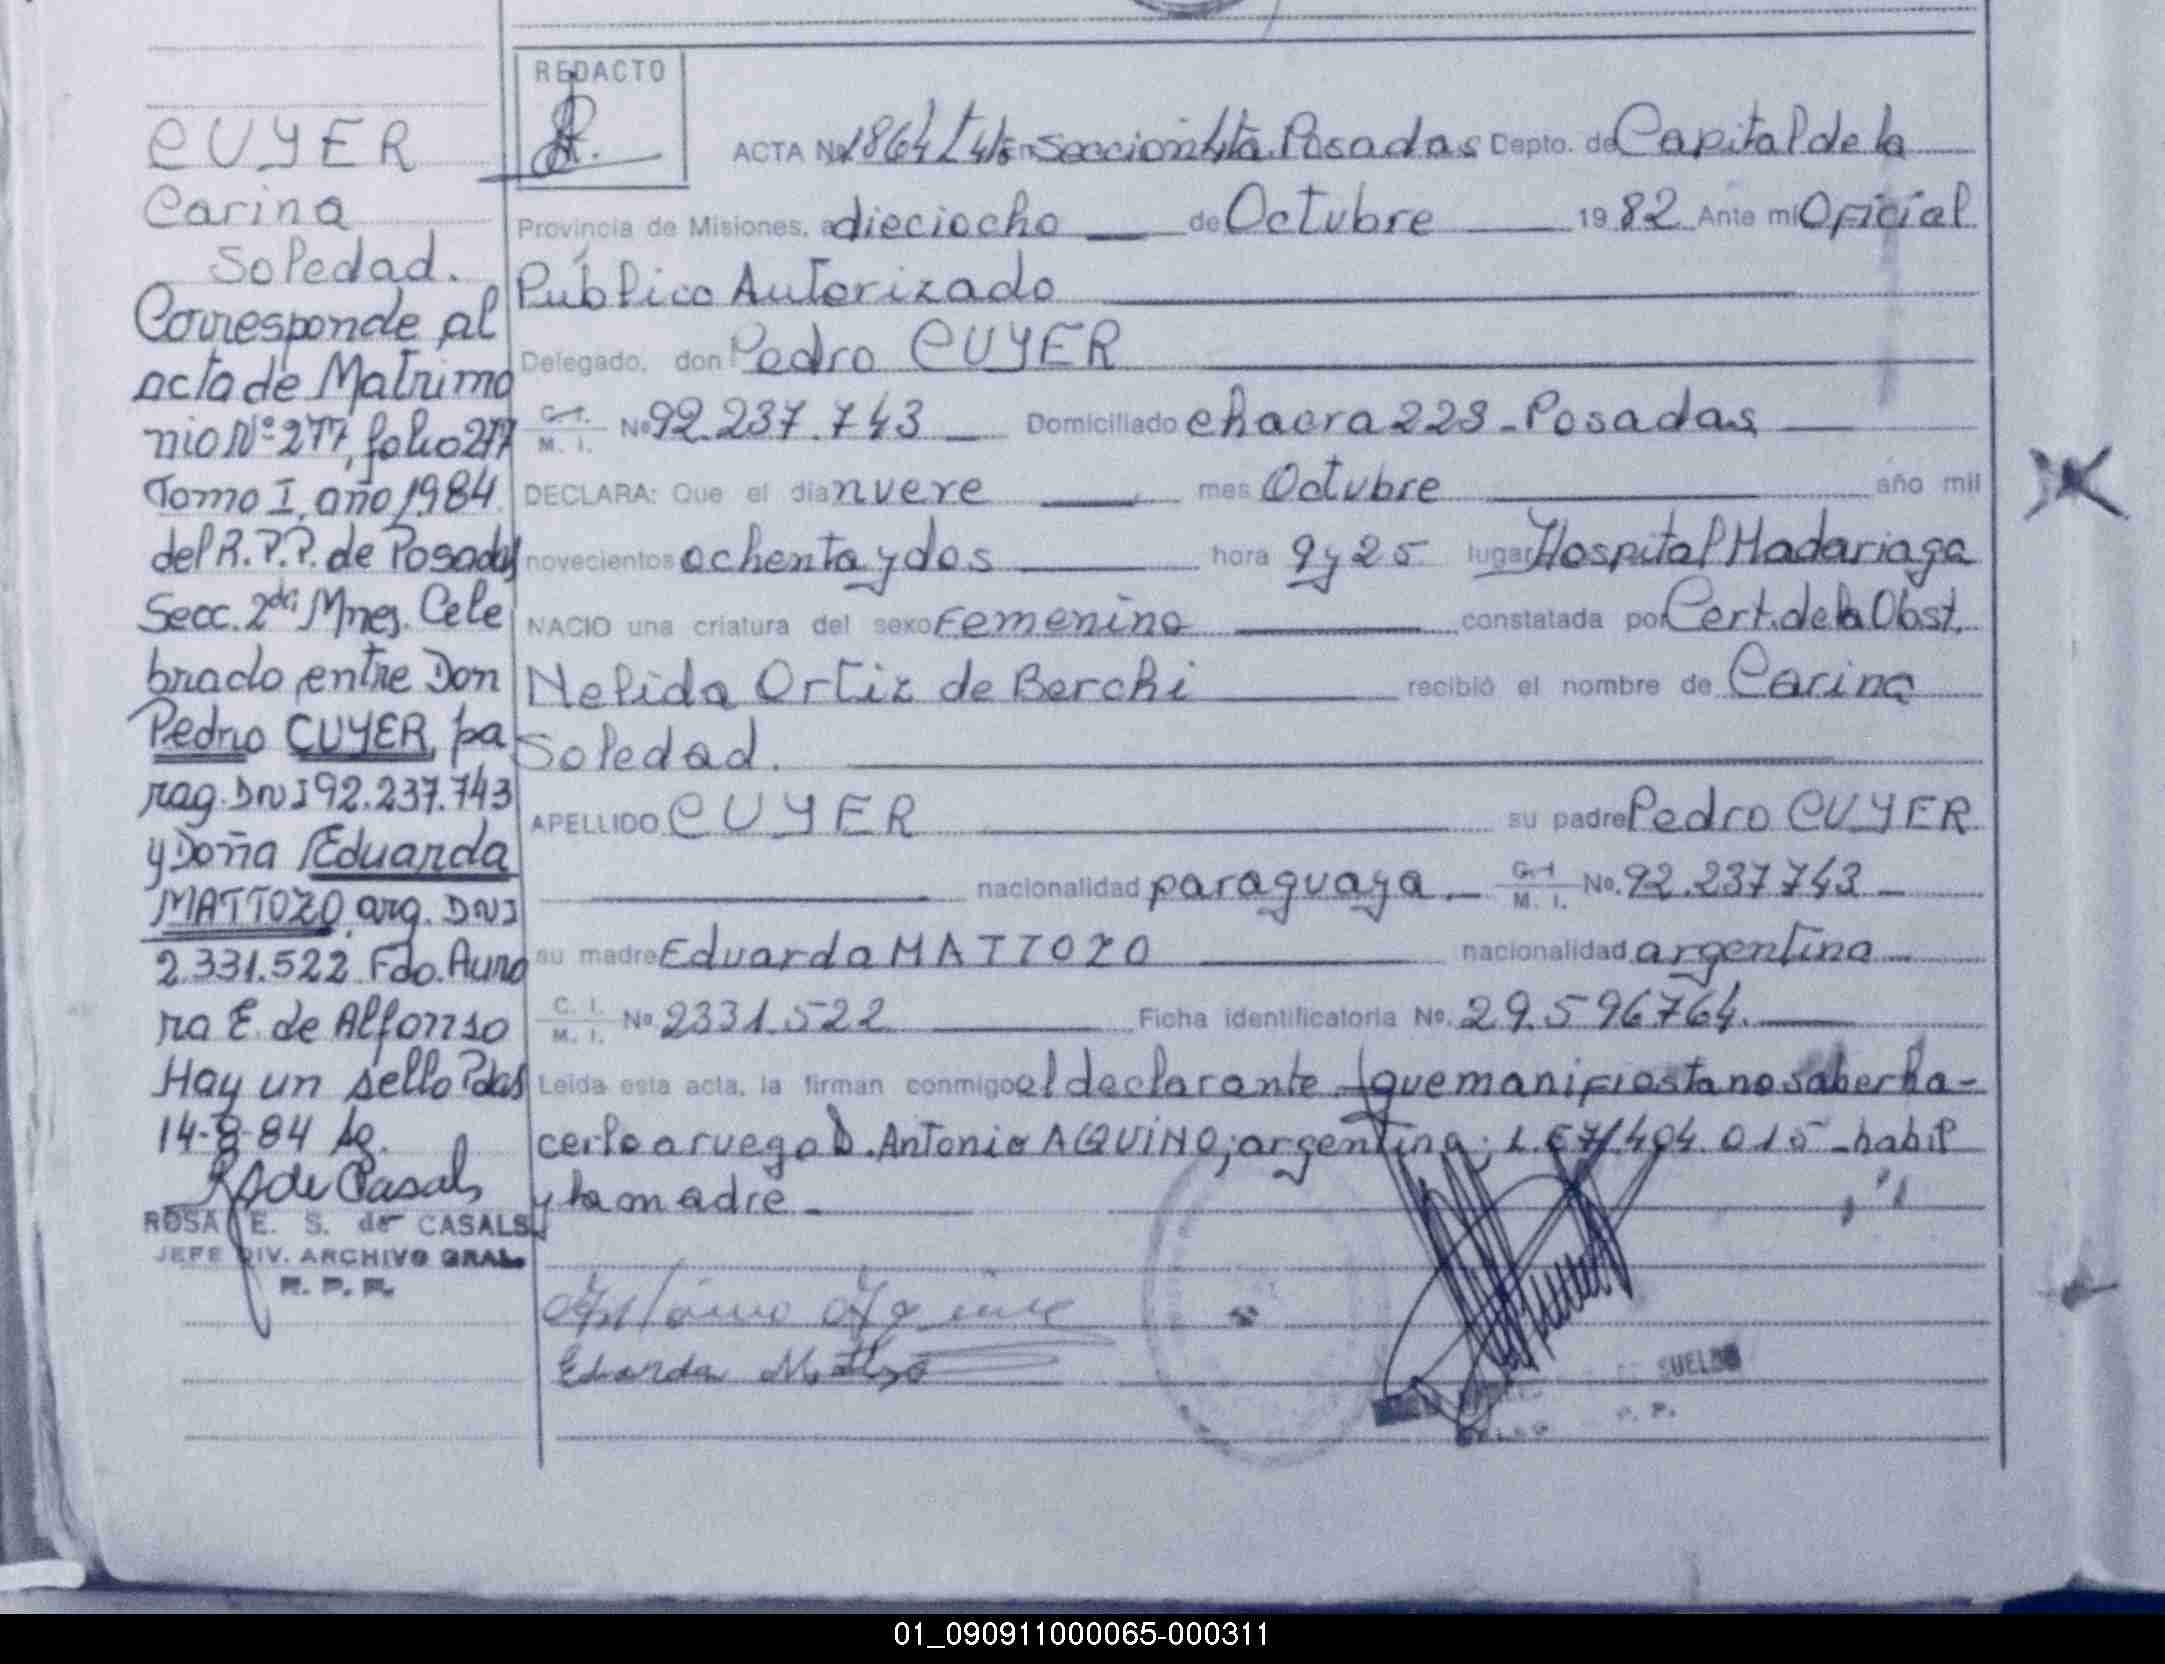 CUYER
Carina
Soledad.
Corresponde al
acta de Matrimo
nio Nº 277, folio 277
Tomo I, año 1984
del R.P.P. de Posadas
Secc. 2da Mnes. Cele
brado entre Don
Pedro CUYER, pa
rag. DNI 92.237.743
y Doña Eduarda
MATTOZO, arg. DNI
2.331.522 Fdo. Auro
ra E. de Alfonso
Hay un sello Pdas
14-8-84
ROSA E. S. de CASALS
JEFE DIV. ARCHIVO GRAL.
R. P. P.
REDACTO
ACTA No 1864 Seccion 4ta. Posadas Depto. de Capital de la
Provincia de Misiones, a dieciocho de Octubre 1982 Ante mi Oficial
Público Autorizado
Delegado, don Pedro CUYER
C. I. M. I. No 92.237.743 Domiciliado chacra 228 - Posadas
DECLARA: Que el dia nueve mes Octubre año mil
novecientos ochenta y dos hora 9 y 25 lugar Hospital Madariaga
NACIO una criatura del sexo Femenino constatada por Cert. de la Obst.
Nelida Ortiz de Berchi recibió el nombre de Carina
Soledad.
APELLIDO CUYER su padre Pedro CUYER
nacionalidad paraguaya. C. I. M. I. No. 92.237743
su madre Eduarda MATTOZO nacionalidad argentina
C. I. M. I. No 2331.522 Ficha identificatoria No. 29.596764.
Leida esta acta, la firman conmigo el declarante que manifiesta no saber ha-
cerlo a ruego D. Antonio AQUINO; argentina; L.E 7/404.015 - habil
y la madre
Eduarda Mattozo
SUELDO
01_090911000065-000311